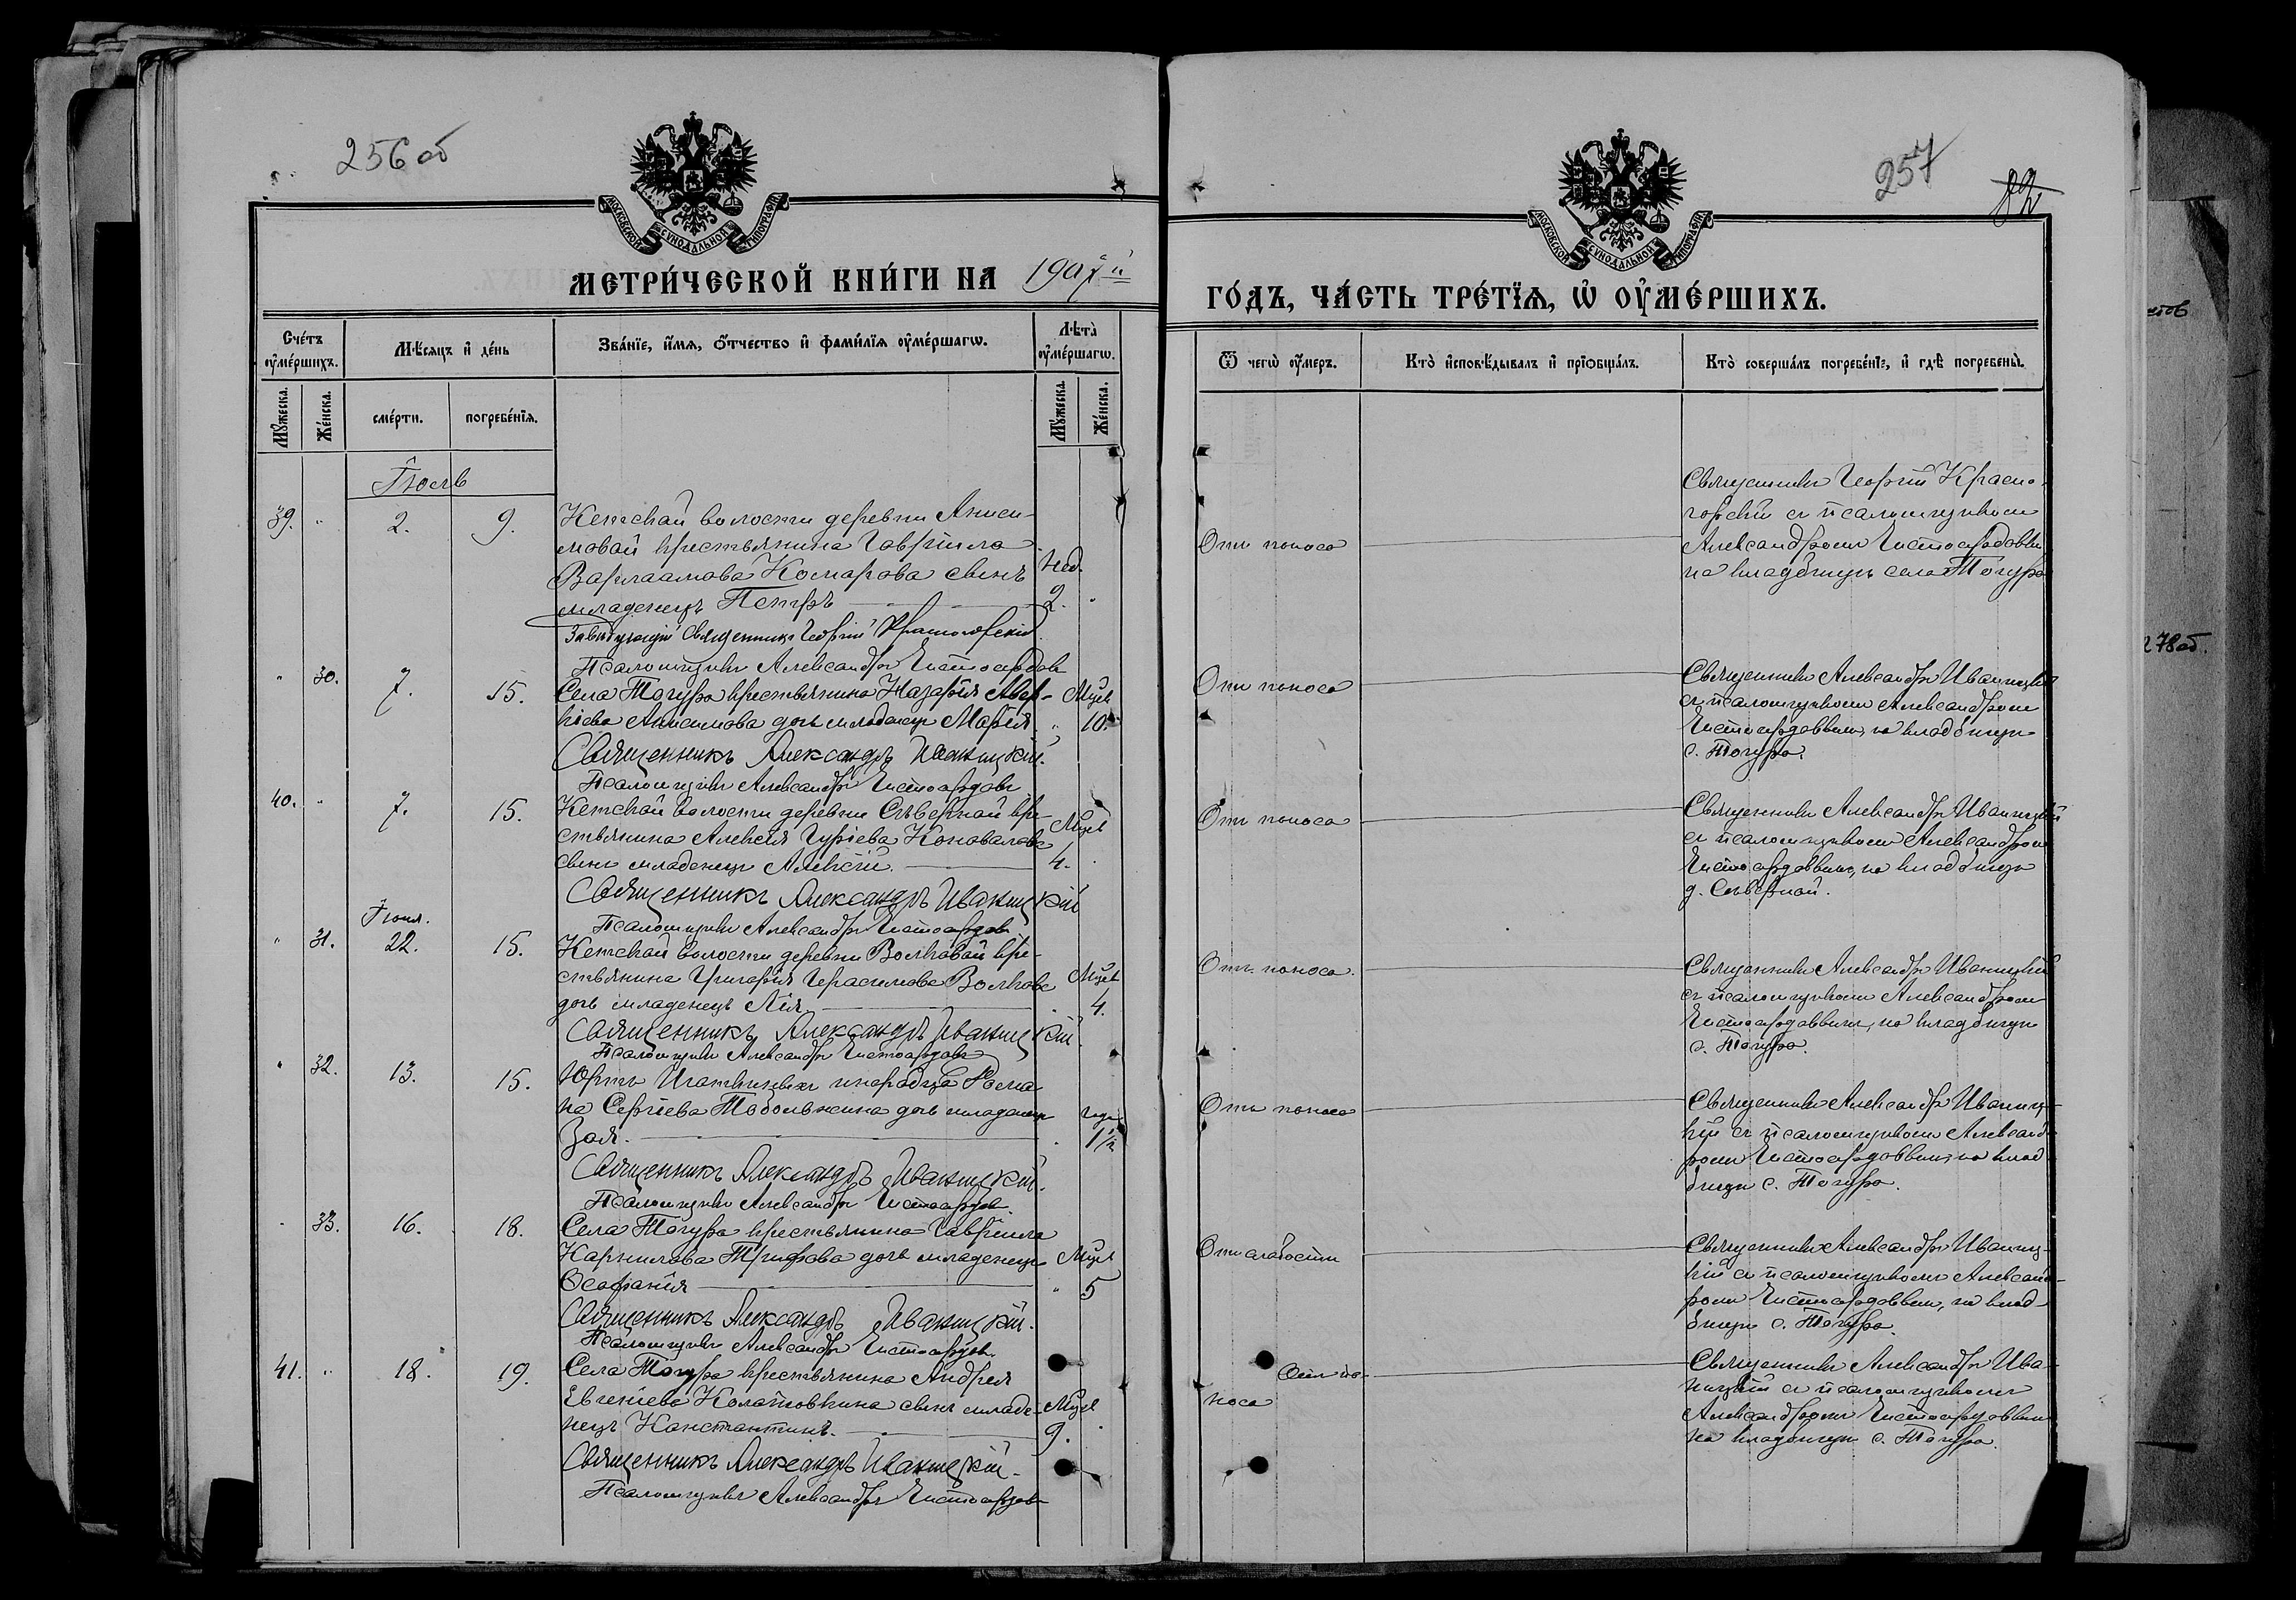 256 об
МОСКОВСКОЙ СѴНОДАЛЬНОЙ ТИПОГРАФІИ
МЕТРИ́ЧЕСКОЙ КНИ́ГИ НА 1907 й
Сче́тъ ᲂумершихъ.
Мѣсяцъ и де́нь
Зва́нїе, и́мѧ, ѻ҆́тчество и҆ фами́лїѧ ᲂу҆ме́ршагѡ.
Лѣта̀ ᲂу҆ме́ршагѡ.
Мꙋ́жеска.
Же́нска.
сме́рти.
погребе́нїѧ.
Мꙋ́жеска.
Же́нска.
Іюль
39. " 2. 9.
Кетской волости деревни Аниси-
мовой крестьянина Гавріила
Варлаамова Комарова сынъ
младенецъ Петръ
нед.
2. "
Завѣдующій Священникъ Георгій Красногорскій
Псаломщикъ Александръ Чистосердовъ
" 30. 7. 15.
Села Тогура крестьянина Назарія Авер-
кіева Анисимова дочь младенецъ Марія
Мцев
" 10.
Священникъ Александръ Иваницкій.
Псаломщикъ Александръ Чистосердовъ
40. " 7. 15.
Кетской волости деревни Сѣверной кре-
стьянина Алексѣя Гурьева Коновалова
сынъ младенецъ Алексій.
Мцев
4. "
Священникъ Александръ Иваницкій
Псаломщикъ Александръ Чистосердовъ
Іюня.
" 31. 22. 15.
Кетской волости деревни Волковой кре-
стьянина Григорія Герасимова Волкова
дочь младенецъ Лія.
Мцев
" 4.
Священникъ Александръ Иваницкій.
Псаломщикъ Александръ Чистосердовъ
" 32. 13. 15.
Юртъ инородца Рома-
на Сергіева Тобольжина дочь младенецъ
Зоя.
года
" 1½
Священникъ Александръ Иваницкій.
Псаломщикъ Александръ Чистосердовъ.
" 33. 16. 18.
Села Тогура крестьянина Гавріила
Корнилова Трифова дочь младенецъ
Ѳеофанія
Мцев
" 5
Священникъ Александръ Иваницкій.
Псаломщикъ Александръ Чистосердовъ.
41. " 18. 19.
Села Тогура крестьянина Андрея
Евгеніева Колотовкина сынъ младе-
нецъ Константинъ.
Мцев
9. "
Священникъ Александръ Иваницкій.
Псаломщикъ Александръ Чистосердовъ
257
82
МОСКОВСКОЙ СѴНОДАЛЬНОЙ ТИПОГРАФІИ
ГО́ДЪ, ЧА́СТЬ ТРЕ́ТЇѦ, Ѡ҆ ОУ҆МЕ́РШИХЪ.
Ѿ чегѡ̀ ᲂу҆́меръ.
Кто̀ и҆сповѣ́дывалъ и҆ прїѡбща́лъ.
Кто̀ соверша́лъ погребе́нїе, и҆ гдѣ̀ погребены̀.
Отъ поноса
Священникъ Георгій Красно-
горскій съ псаломщикомъ
Александромъ Чистосердовымъ
на кладбищѣ села Тогура
Отъ поноса
Священникъ Александръ Иваницкій
съ псаломщикомъ Александромъ
Чистосердовымъ, на кладбищѣ
с. Тогура.
Отъ поноса
Священникъ Александръ Иваницкій
съ псаломщикомъ Александромъ
Чистосердовымъ, на кладбищѣ
д. Сѣверной.
Отъ поноса.
Священникъ Александръ Иваницкій
съ псаломщикомъ Александромъ
Чистосердовымъ, на кладбищѣ
с. Тогура.
Отъ поноса
Священникъ Александръ Иваниц-
кій съ псаломщикомъ Александ-
ромъ Чистосердовымъ, на клад-
бищѣ с. Тогура.
Отъ слабости
Священникъ Александръ Иваниц-
кій съ псаломщикомъ Александ-
ромъ Чистосердовымъ, на клад-
бищѣ с. Тогура.
Отъ по-
носа
Священникъ Александръ Ива-
ницкій съ псаломщикомъ
Александромъ Чистосердовымъ
на кладбищѣ с. Тогура.
278об.